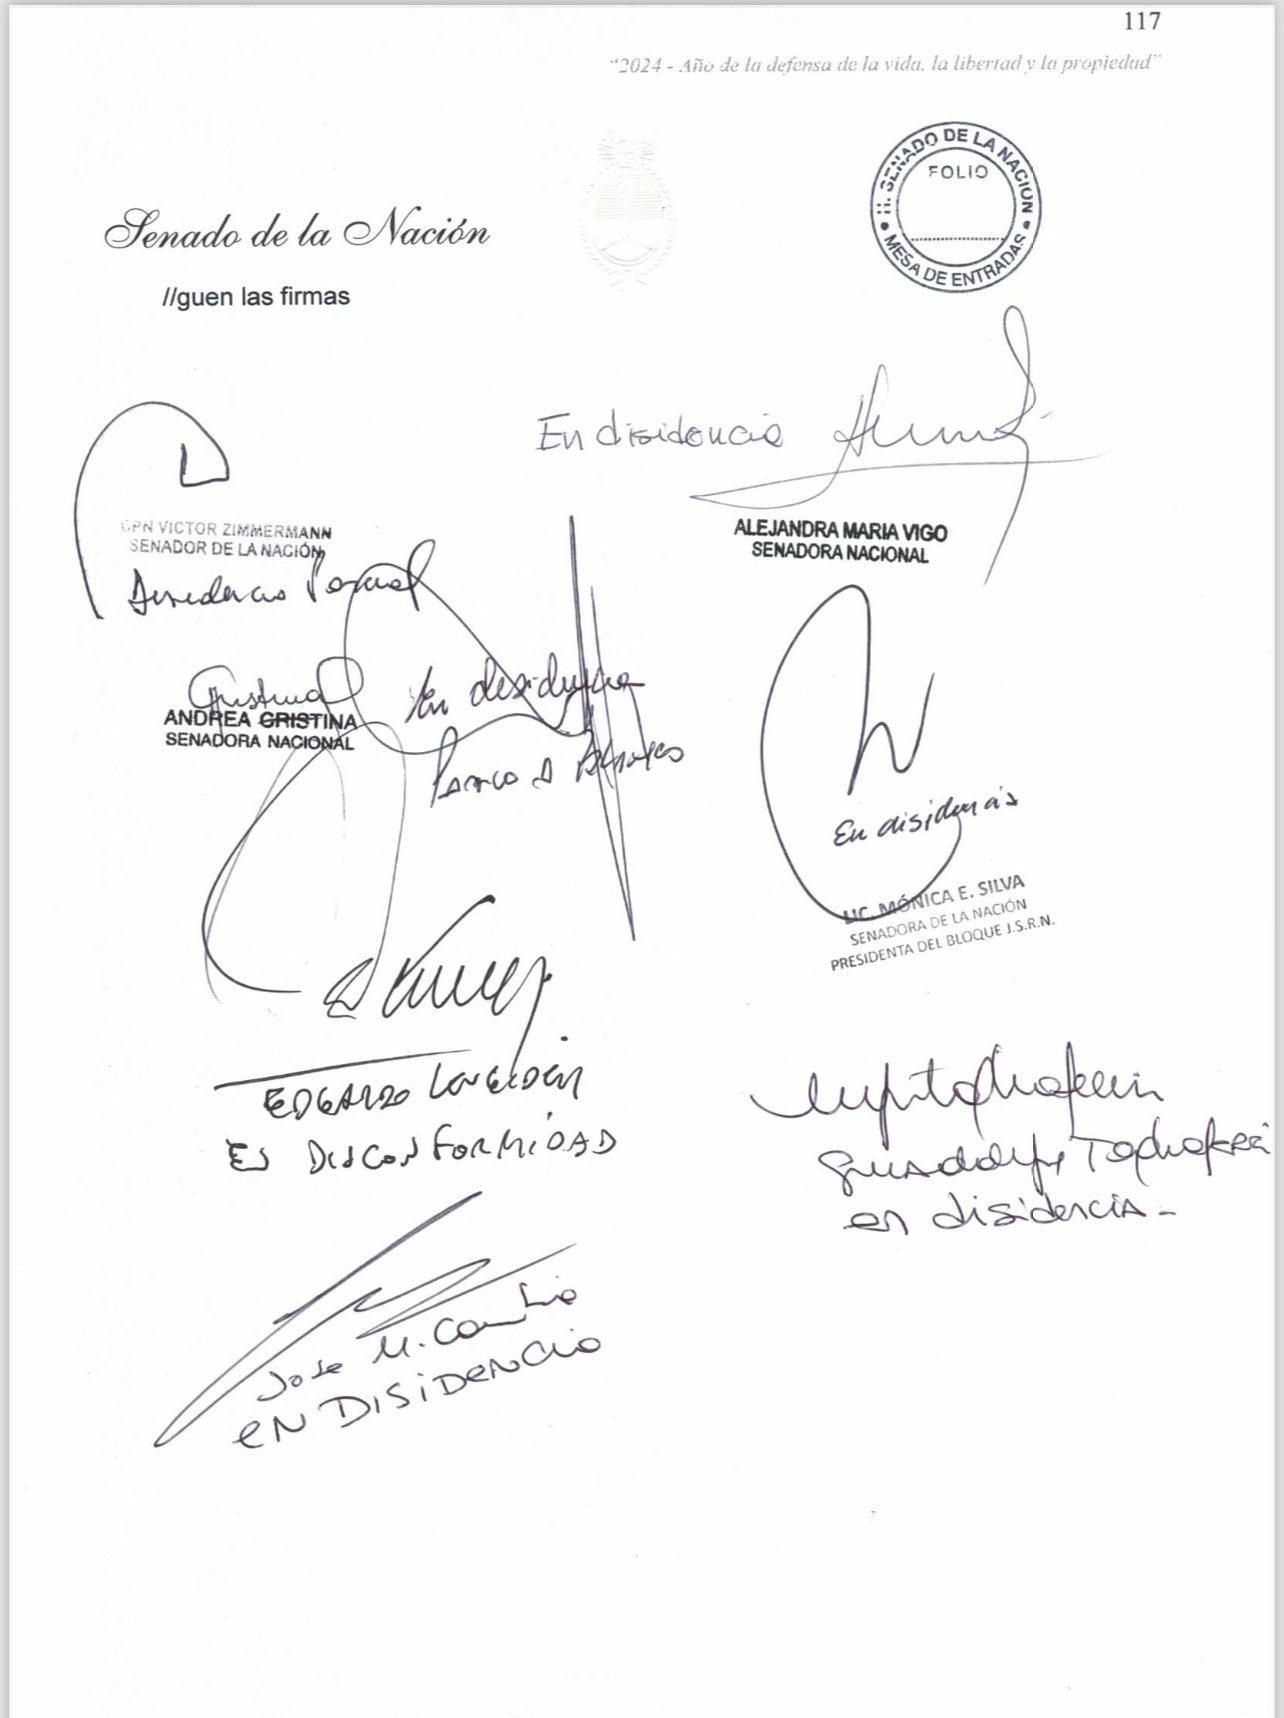 117
"2024 - Año de la defensa de la vida, la libertad y la propiedad"
H. SENADO DE LA NACION
FOLIO
MESA DE ENTRADAS
Senado de la Nación
//guen las firmas
En disidencia
ALEJANDRA MARIA VIGO
SENADORA NACIONAL
CPN VICTOR ZIMMERMANN
SENADOR DE LA NACIÓN
Disidencia Parcial
Cristina
ANDREA CRISTINA
SENADORA NACIONAL
En disidencia
En disidencia
LIC. MÓNICA E. SILVA
SENADORA DE LA NACIÓN
PRESIDENTA DEL BLOQUE J.S.R.N.
EDGARDO
EN DISCONFORMIDAD
Guadalupe Tagliaferri
en disidencia -
Jose M. Carambia
EN DISIDENCIA